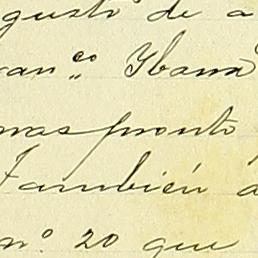 gusto de a
can.co Ybarra
mas pronto
También a
nº. 20 que